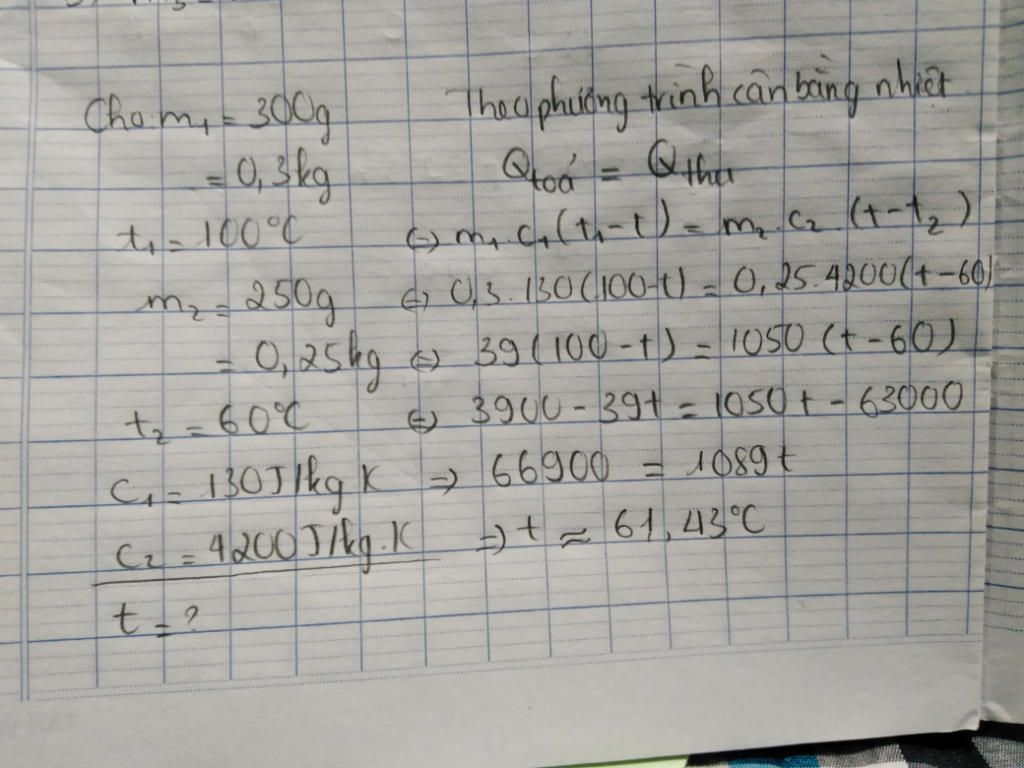 Cho m₁ = 300g
= 0,3kg
t₁ = 100°C
m₂ = 250g
= 0,25kg
t₂ = 60°C
C₁ = 130J/kg K
C₂ = 4200J/kg.K
t = ?
Theo phương trình cân bằng nhiệt
Qtoả = Qthu
⇔ m₁.C₁(t₁-t) = m₂.C₂.(t-t₂)
⇔ 0,3.130(100-t) = 0,25.4200(t-60)
⇔ 39(100-t) = 1050(t-60)
⇔ 3900-39t = 1050t-63000
⇒ 66900 = 1089t
⇒ t ≈ 61,43°C